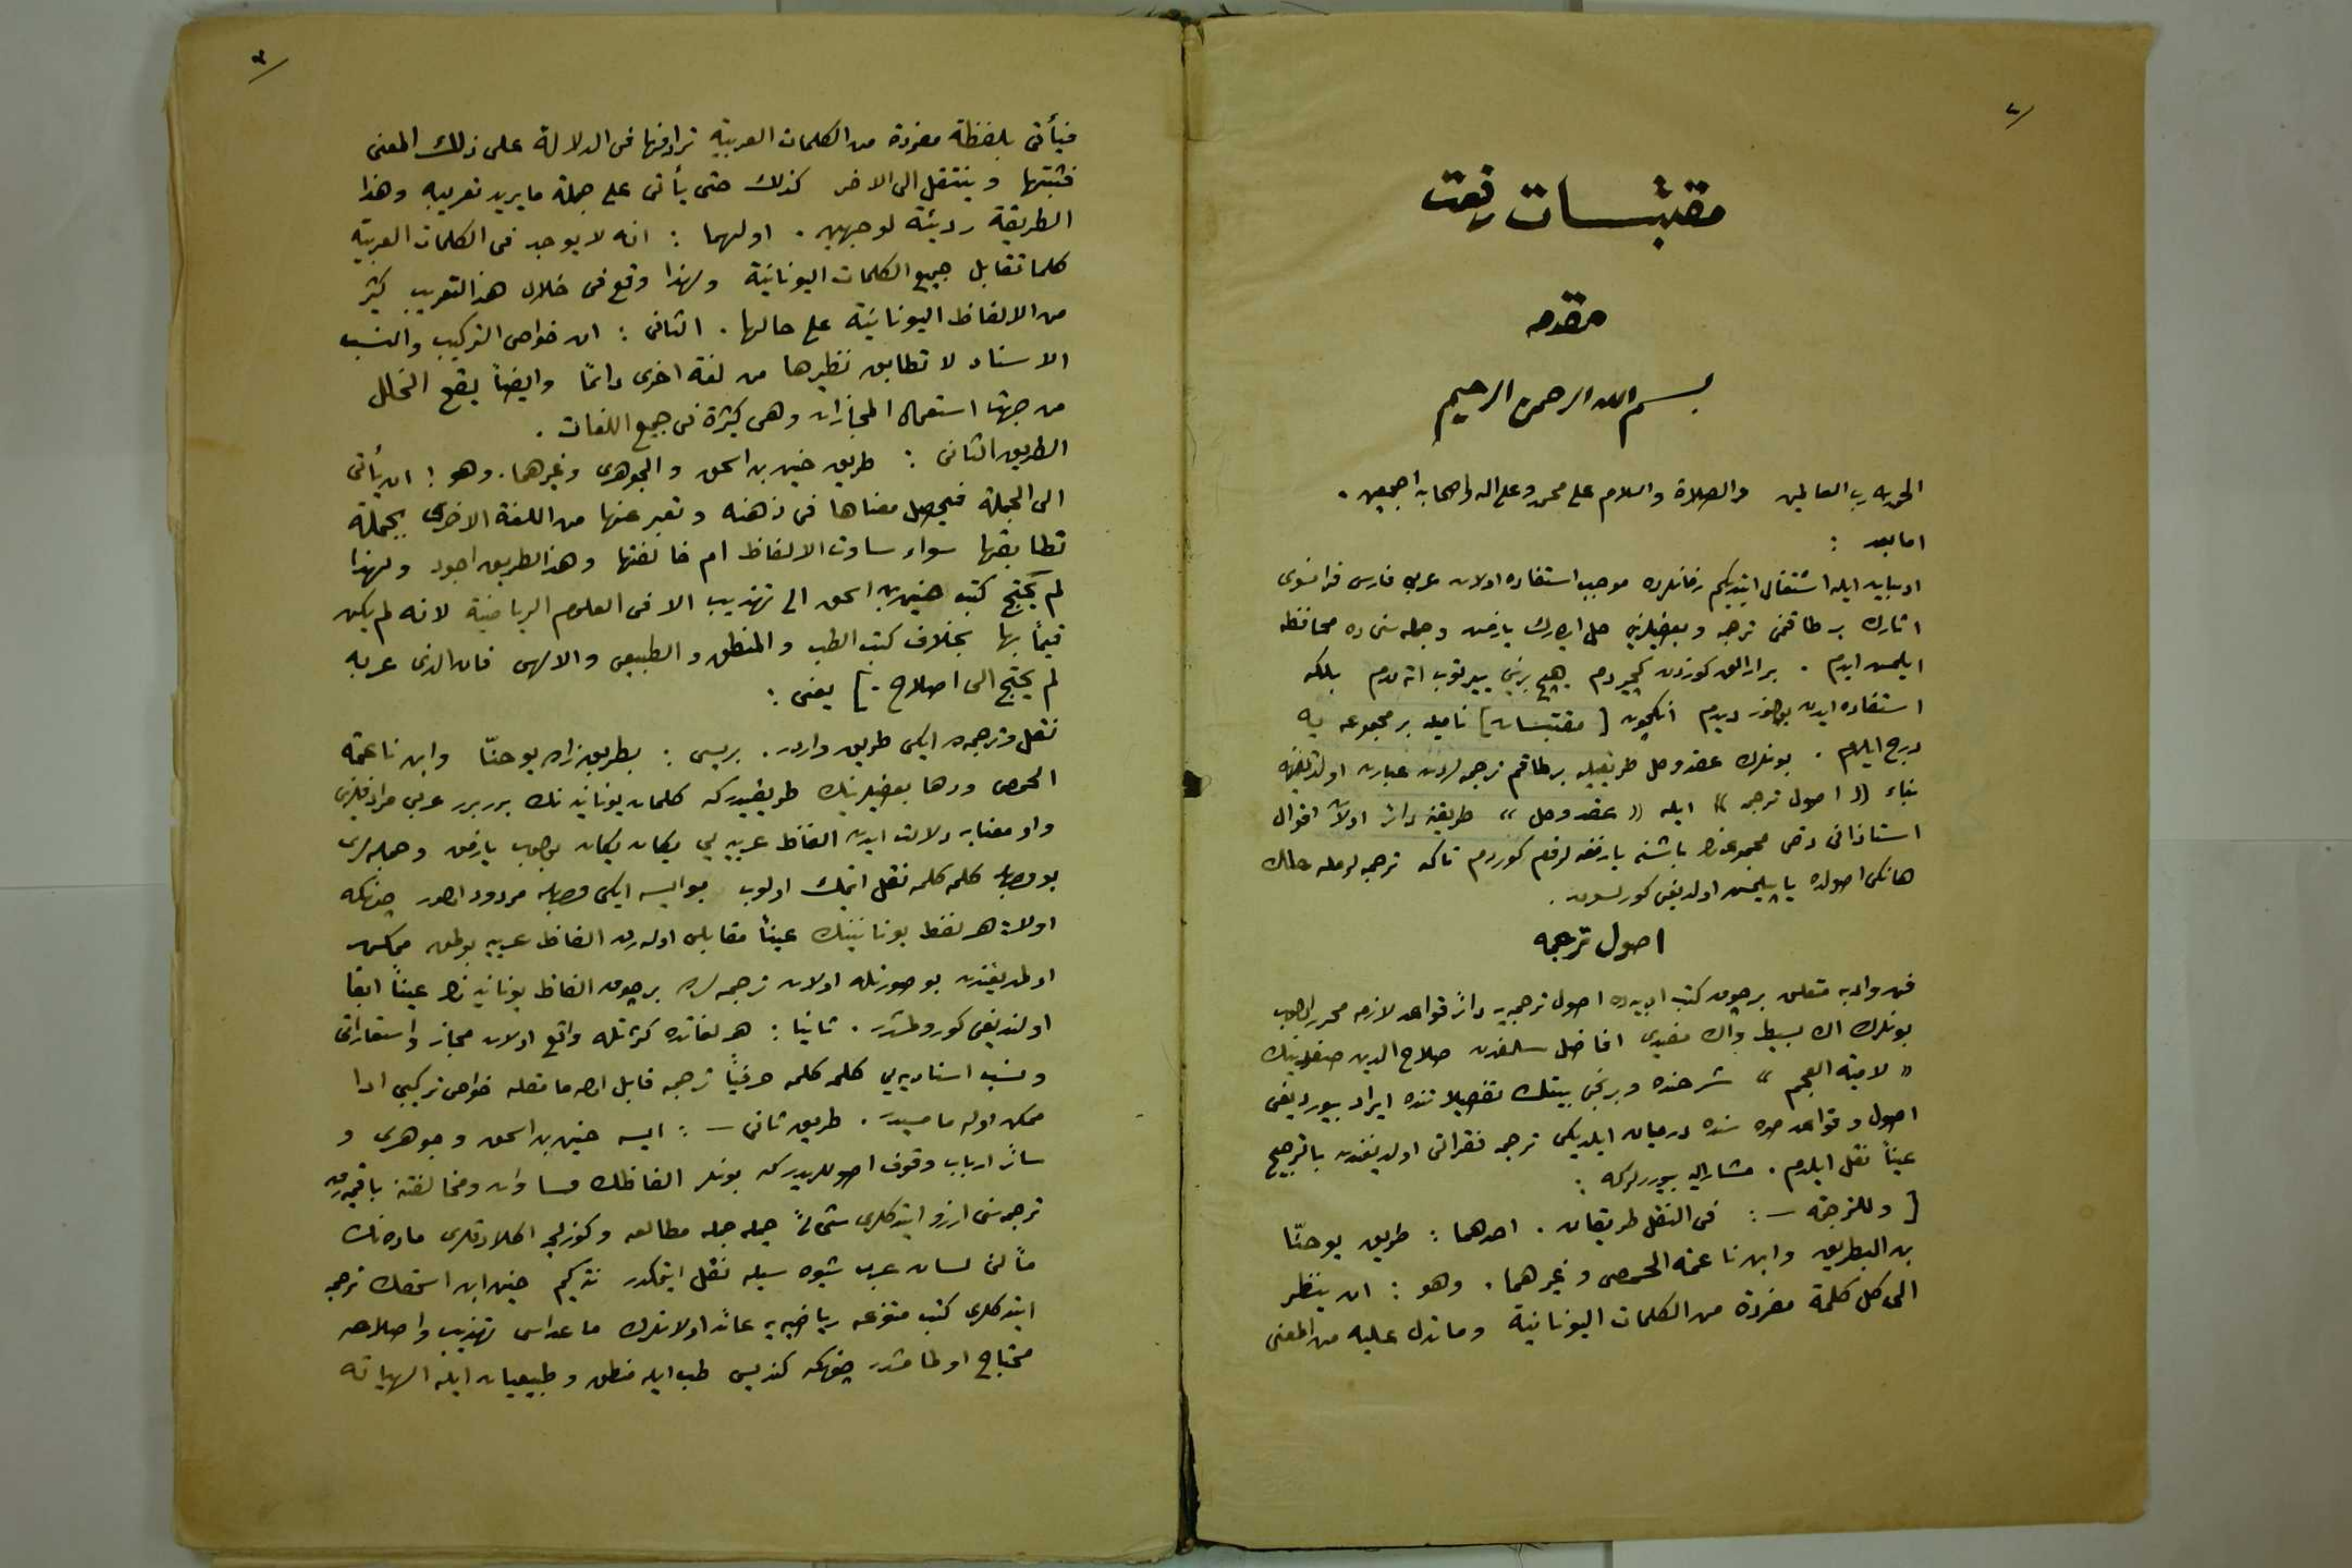 ٢
مقتبسات رفعت
مقدمه
بسم الله الرحمن الرحيم
الحمد لله رب العالمين والصلاة والسلام على محمد وعلى اله واصحابه اجمعين .
اما بعد :
ادبيات ايله اشتغال ايتديكم زمانلرده موجب استفاده اولان عربى فارسى فرانسوى
اثارك بر طاقمنى ترجمه وبعضيلرينى حل ايدرك يازمش وجمله سنى ده محافظه
ايلمش ايدم . بر ارالق كوزدن كچيردم هيچ برينى ييرتوب اته مدم بلكه
استفاده ايدن بولنور ديدم انكچون [ مقتبسات ] ناميله بر مجموعه يه
درج ايلدم . بونلرك عقد وحل طريقيله بر طاقم ترجمه لردن عبارت اولديغنه
بناء « اصول ترجمه » ايله « عقد وحل » طريقنه دائر اولان اقوال
استاذانى دخى مجموعه نك باشنه يازمغه لزوم كوردم تاكه ترجمه لرمله حللك
هانكى اصولده ياپيلمش اولديغى كورلسون .
اصول ترجمه
فن وادبه متعلق بر چوق كتب ادبيه ده اصول ترجمه يه دائر قواعد لازمه محرر اولوب
بونلرك اك بسيط واك مفيدى افاضل سلفدن صلاح الدين صفدينك
« لامية العجم » شرحنده وبرنجى بيتك تفصيلاتنده ايراد بيورديغى
اصول وقواعد صره سنده درميان ايلديكى ترجمه فقراتى اولديغندن بالترجيح
عيناً نقل ايلدم . مشاراليه بيوررلركه :
[ وللترجمة — : فى النقل طريقان . احدهما : طريق يوحنّا
بن البطريق وابن ناعمة الحمصى وغيرهما . وهو : ان ينظر
الى كل كلمة مفردة من الكلمات اليونانية وما تدل عليه من المعنى
٣
فيأتى بلفظة مفردة من الكلمات العربية ترادفها فى الدلالة على ذلك المعنى
فثبتها وينتقل الى الاخر كذلك حتى يأتى على جملة ما يريد تعريبه وهذا
الطريقة رديئة لوجهين . اولهما : انه لا يوجد فى الكلمات العربية
كلما تقابل جميع الكلمات اليونانية ولهذا وقع فى خلال هذا التعريب كثير
من الالفاظ اليونانية على حالها . الثانى : ان خواص التركيب والنسب
الاسناد لا تطابق نظيرها من لغة اخرى دائماً وايضاً يقع الخلل
من جهة استعمال المجازات وهى كثيرة فى جميع اللغات .
الطريق الثانى : طريق حنين بن اسحق والجوهرى وغيرهما . وهو : ان يأتى
الى الجملة فيحصل معناها فى ذهنه وتعبر عنها من اللغة الاخرى بجملة
تطابقها سواء ساوت الالفاظ ام خالفتها وهذا الطريق اجود ولهذا
لم يحتج كتب حنين بن اسحق الى تهذيب الا فى العلوم الرياضية لانه لم يكن
قيماً بها بخلاف كتب الطب والمنطق والطبيعى والالهى فان الذى عربه
لم يحتج الى اصلاح . ] يعنى :
نقل وترجمه ده ايكى طريق واردر . بريسى : بطريق زاده يوحنّا وابن ناعمة
الحمصى ودها بعضيلرينك طريقيدركه كلمات يونانيه نك برر برر عربى مرادفلرينى
واو معنايه دلالت ايدن الفاظ عربيه يى يكان يكان بولوب يازمق وجمله لرى
بو وجهله كلمه كلمه نقل ايتمك اولوب بو ايسه ايكى وجهله مردود اولور چونكه
اولا : هر لفظ يونانينك عيناً مقابلى اوله رق الفاظ عربيه بولمق ممكن
اولمديغندن بو صورتله اولان ترجمه لرده بر چوق الفاظ يونانيه نك عيناً ابقا
اولنديغى كورولمشدر . ثانيا : هر لغاتده كثرتله واقع اولان مجاز واستعاراتى
ونسب اسناديه يى كلمه كلمه حرفياً ترجمه قابل اوله مامقله خواص تركيبى ادا
ممكن اوله مامسيدر . طريق ثانى — : ايسه حنين بن اسحق وجوهرى و
سائر ارباب وقوف اصوللريدركه بونلر الفاظك مساوات ومخالفتنه باقميه رق
ترجمه سنى ارزو ايتدكلرى شىئ جمله جمله مطالعه وكوزلجه اكلادقلرى ماده نك
مألنى لسان عرب شيوه سيله نقل ايتمكدر نته كيم حنين ابن اسحقك ترجمه
ايتدكلرى كتب متنوعه رياضيه يه عائد اولانلرك ماعداسى تهذيب واصلاحه
محتاج اولمامشدر چونكه كنديسى طب ايله منطق وطبيعيات ايله الهياته